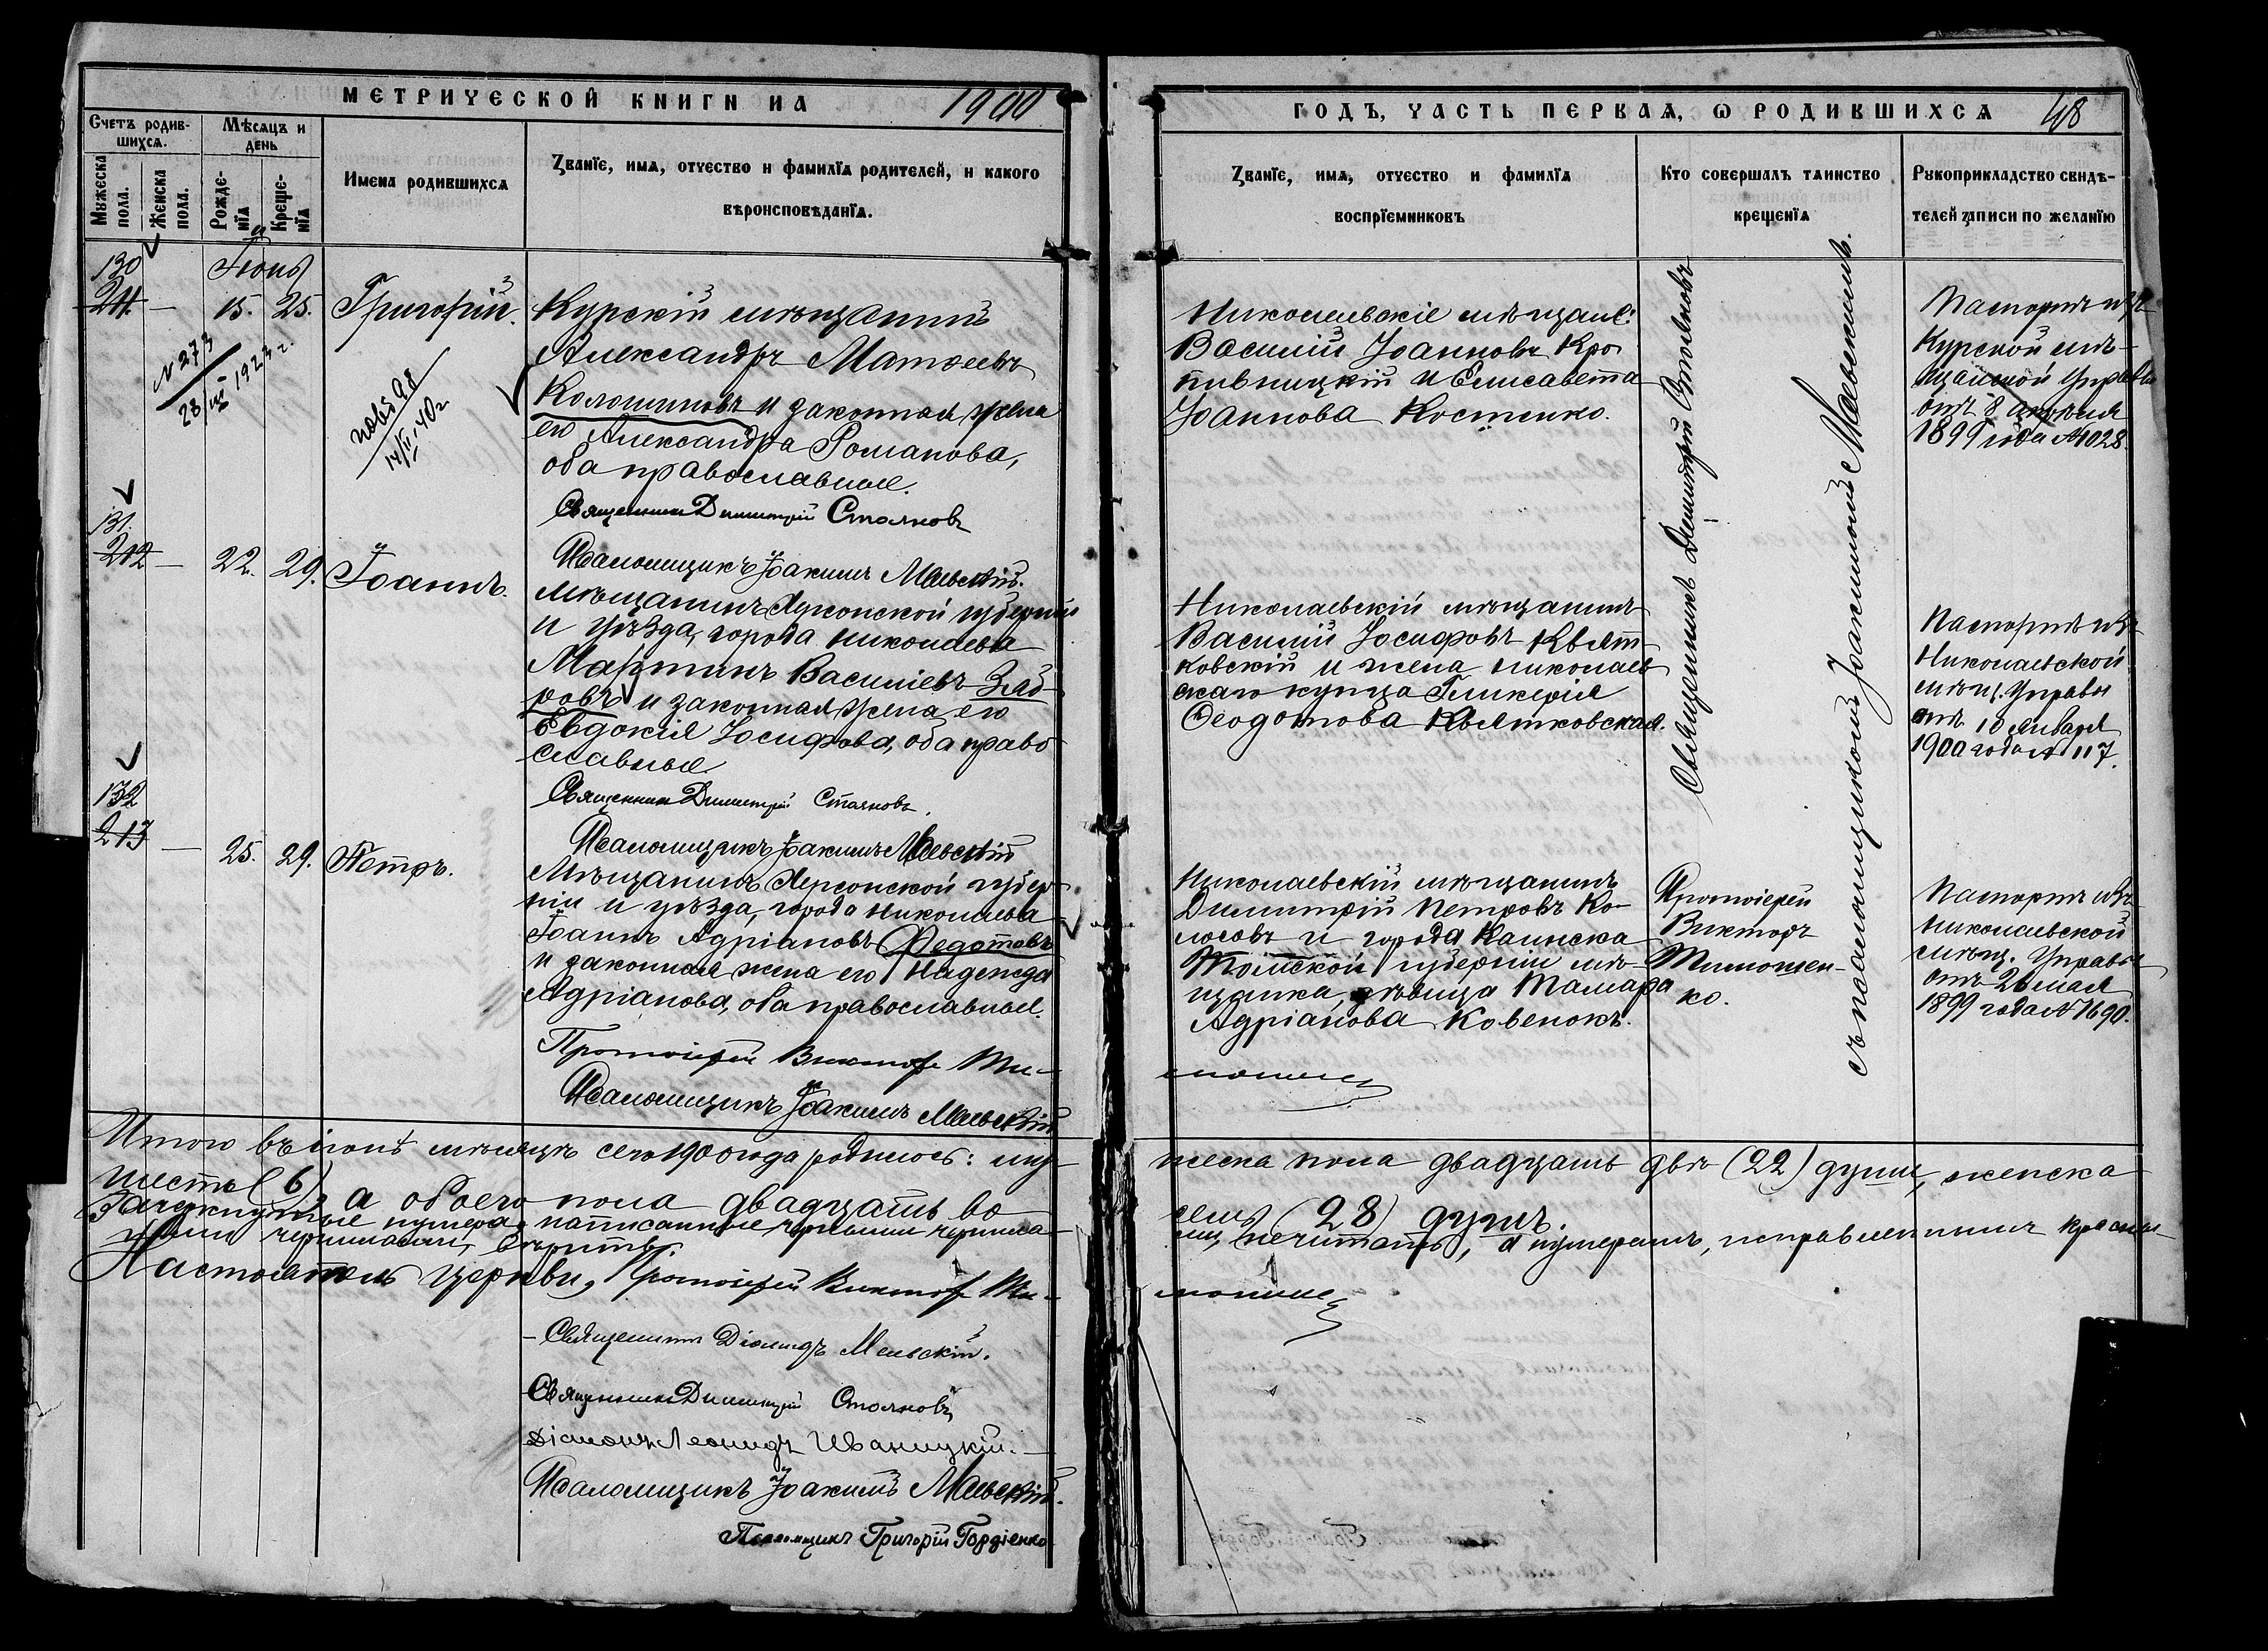 МЕТРИЧЕСКОЙ КНИГИ НА 1900
Счетъ родившихся.
Мѣсяцъ и день
Мужеска пола.
Женска пола.
Рожденія
Крещенія
Имена родившихся
Званіе, имя, отчество и фамилія родителей, и какого
вѣроисповѣданія.
130
211 —
Іюнь
15. 25.
Григорій.
№ 273
28/III 1923 г.
14/II 40 г.
Курскій мѣщанинъ
Александръ Матѳеевъ
Колошиновъ и законная жена
его Александра Романова,
оба православные.
Священникъ Димитрій Стояновъ
Псаломщикъ Іоакимъ Маевскій.
131.
212 —
22. 29.
Іоаннъ.
Мѣщанинъ Херсонской губерніи
и уѣзда, города Николаева
Мартинъ Василіевъ Зяб-
ровъ и законная жена его
Евдокія Іосифова, оба право
славные.
Священникъ Димитрій Стояновъ.
Псаломщикъ Іоакимъ Маевскій
132
213 —
25. 29.
Петръ.
Мѣщанинъ Херсонской губер-
ніи и уѣзда, города Николаева
Іоаннъ Адріановъ Ѳедотовъ
и законная жена его Надежда
Адріанова, оба православные.
Протоіерей Викторъ Ти-
Псаломщикъ Іоакимъ Маевскій
Итого въ іюнѣ мѣсяцѣ сего 1900 года родилось: му-
шесть (6) а обоего пола двадцать во
Зачеркнутые нумера, написанные черными чернила-
ми чернилами, вѣрить.
Настоятель церкви, Протоіерей Викторъ Ти-
Священникъ Діомидъ Маевскій.
Священникъ Димитрій Стояновъ
Діаконъ Леонидъ Иваницкій.
Псаломщикъ Іоакимъ Маевскій.
Псаломщикъ Григорій Гордіенко
ГОДЪ, ЧАСТЬ ПЕРВАЯ, Ѡ РОДИВШИХСЯ 48
Званіе, имя, отчество и фамилія
воспріемниковъ
Кто совершалъ таинство
крещенія
Рукоприкладство свидѣ-
телей записи по желанію
Николаевскіе мѣщане:
Василій Іоанновъ Кро
пивницкій и Елисавета
Іоаннова Костенко.
Паспортъ изъ
Курской мѣ-
щанской Управы
отъ 8 апрѣля
1899 года № 1028.
Священникъ Димитрій Стояновъ
съ псаломщикомъ Іоакимомъ Маевскимъ.
Николаевскій мѣщанинъ
Василій Іосифовъ Квят-
ковскій и жена николаев
скаго купца Гликерія
Ѳеодотова Квятковская.
Паспортъ изъ
Николаевской
мѣщ. Управы
отъ 10 января
1900 года № 117.
Николаевскій мѣщанинъ
Димитрій Петровъ Ко-
лосовъ и города Каинска
Томской губерніи мѣ-
щанка, дѣвица Тамара
Адріанова Ковенокъ.
Протоіерей
Викторъ
Тимошен-
ко.
Паспортъ изъ
Николаевской
мѣщ. Управы
отъ 26 мая
1899 года № 1690.
мошен
жеска пола двадцать двѣ (22) души, женска
семь (28) душъ.
ми, нечитать, а нумерамъ, исправленнымъ красны-
мошен